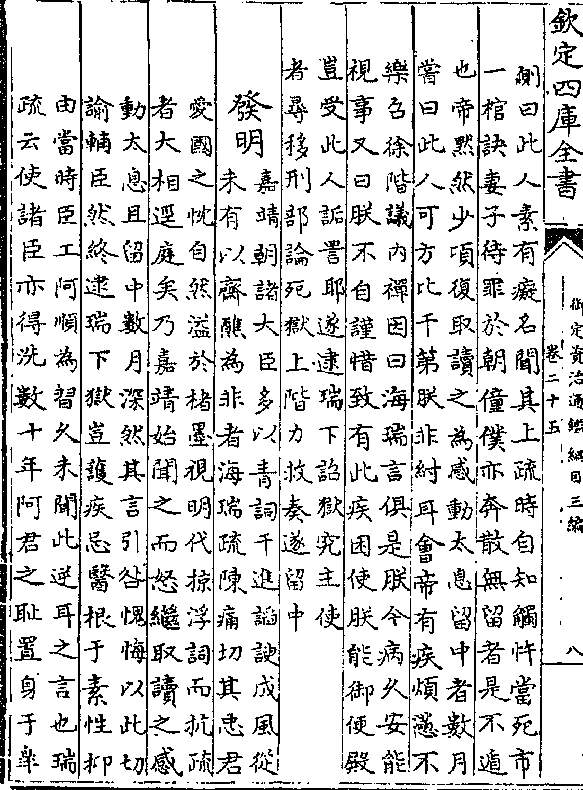 欽定四庫全書
御定資治通鑑綱目三編
卷二十五
八
測曰此人素有癡名聞其上疏時自知觸忤當死市
一棺訣妻子待罪於朝僮僕亦奔散無留者是不遁
也帝黙然少頃復取讀之為感動太息留中者數月
嘗曰此人可方比干第朕非紂耳會帝有疾煩懣不
樂召徐階議內禪因曰海瑞言俱是朕今病久安能
視事又曰朕不自謹惜致有此疾困使朕能御便殿
豈受此人詬詈耶遂逮瑞下詔獄究主使
者尋移刑部論死獄上階力救奏遂留中
發明
嘉靖朝諸大臣多以青詞干進謟諛成風從
未有以齋醮為非者海瑞疏陳痛切其忠君
愛國之忱自然溢於楮墨視明代掠浮詞而抗疏
者大相逕庭矣乃嘉靖始聞之而怒繼取讀之感
動太息且留中數月深然其言引咎愧悔以此切
諭輔臣然終逮瑞下獄豈護疾忌醫根于素性抑
由當時臣工阿順為習久未聞此逆耳之言也瑞
疏云使諸臣亦得洗數十年阿君之耻置身于臯